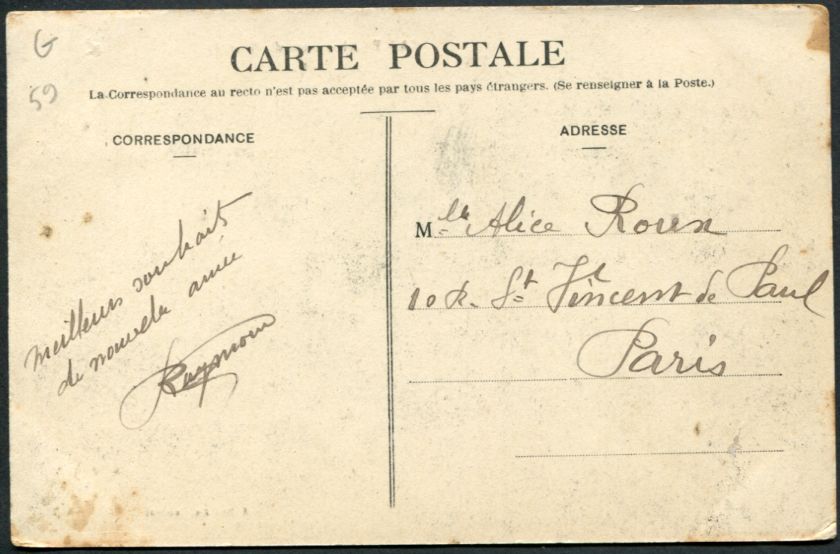 G
59
CARTE POSTALE
La Correspondance au recto n'est pas acceptée par tous les pays étrangers. (Se renseigner à la Poste.)
CORRESPONDANCE
meilleurs souhaits
de nouvelle année
Raymond
ADRESSE
Mlle Alice Roux
10 R. St Vincent de Paul
Paris